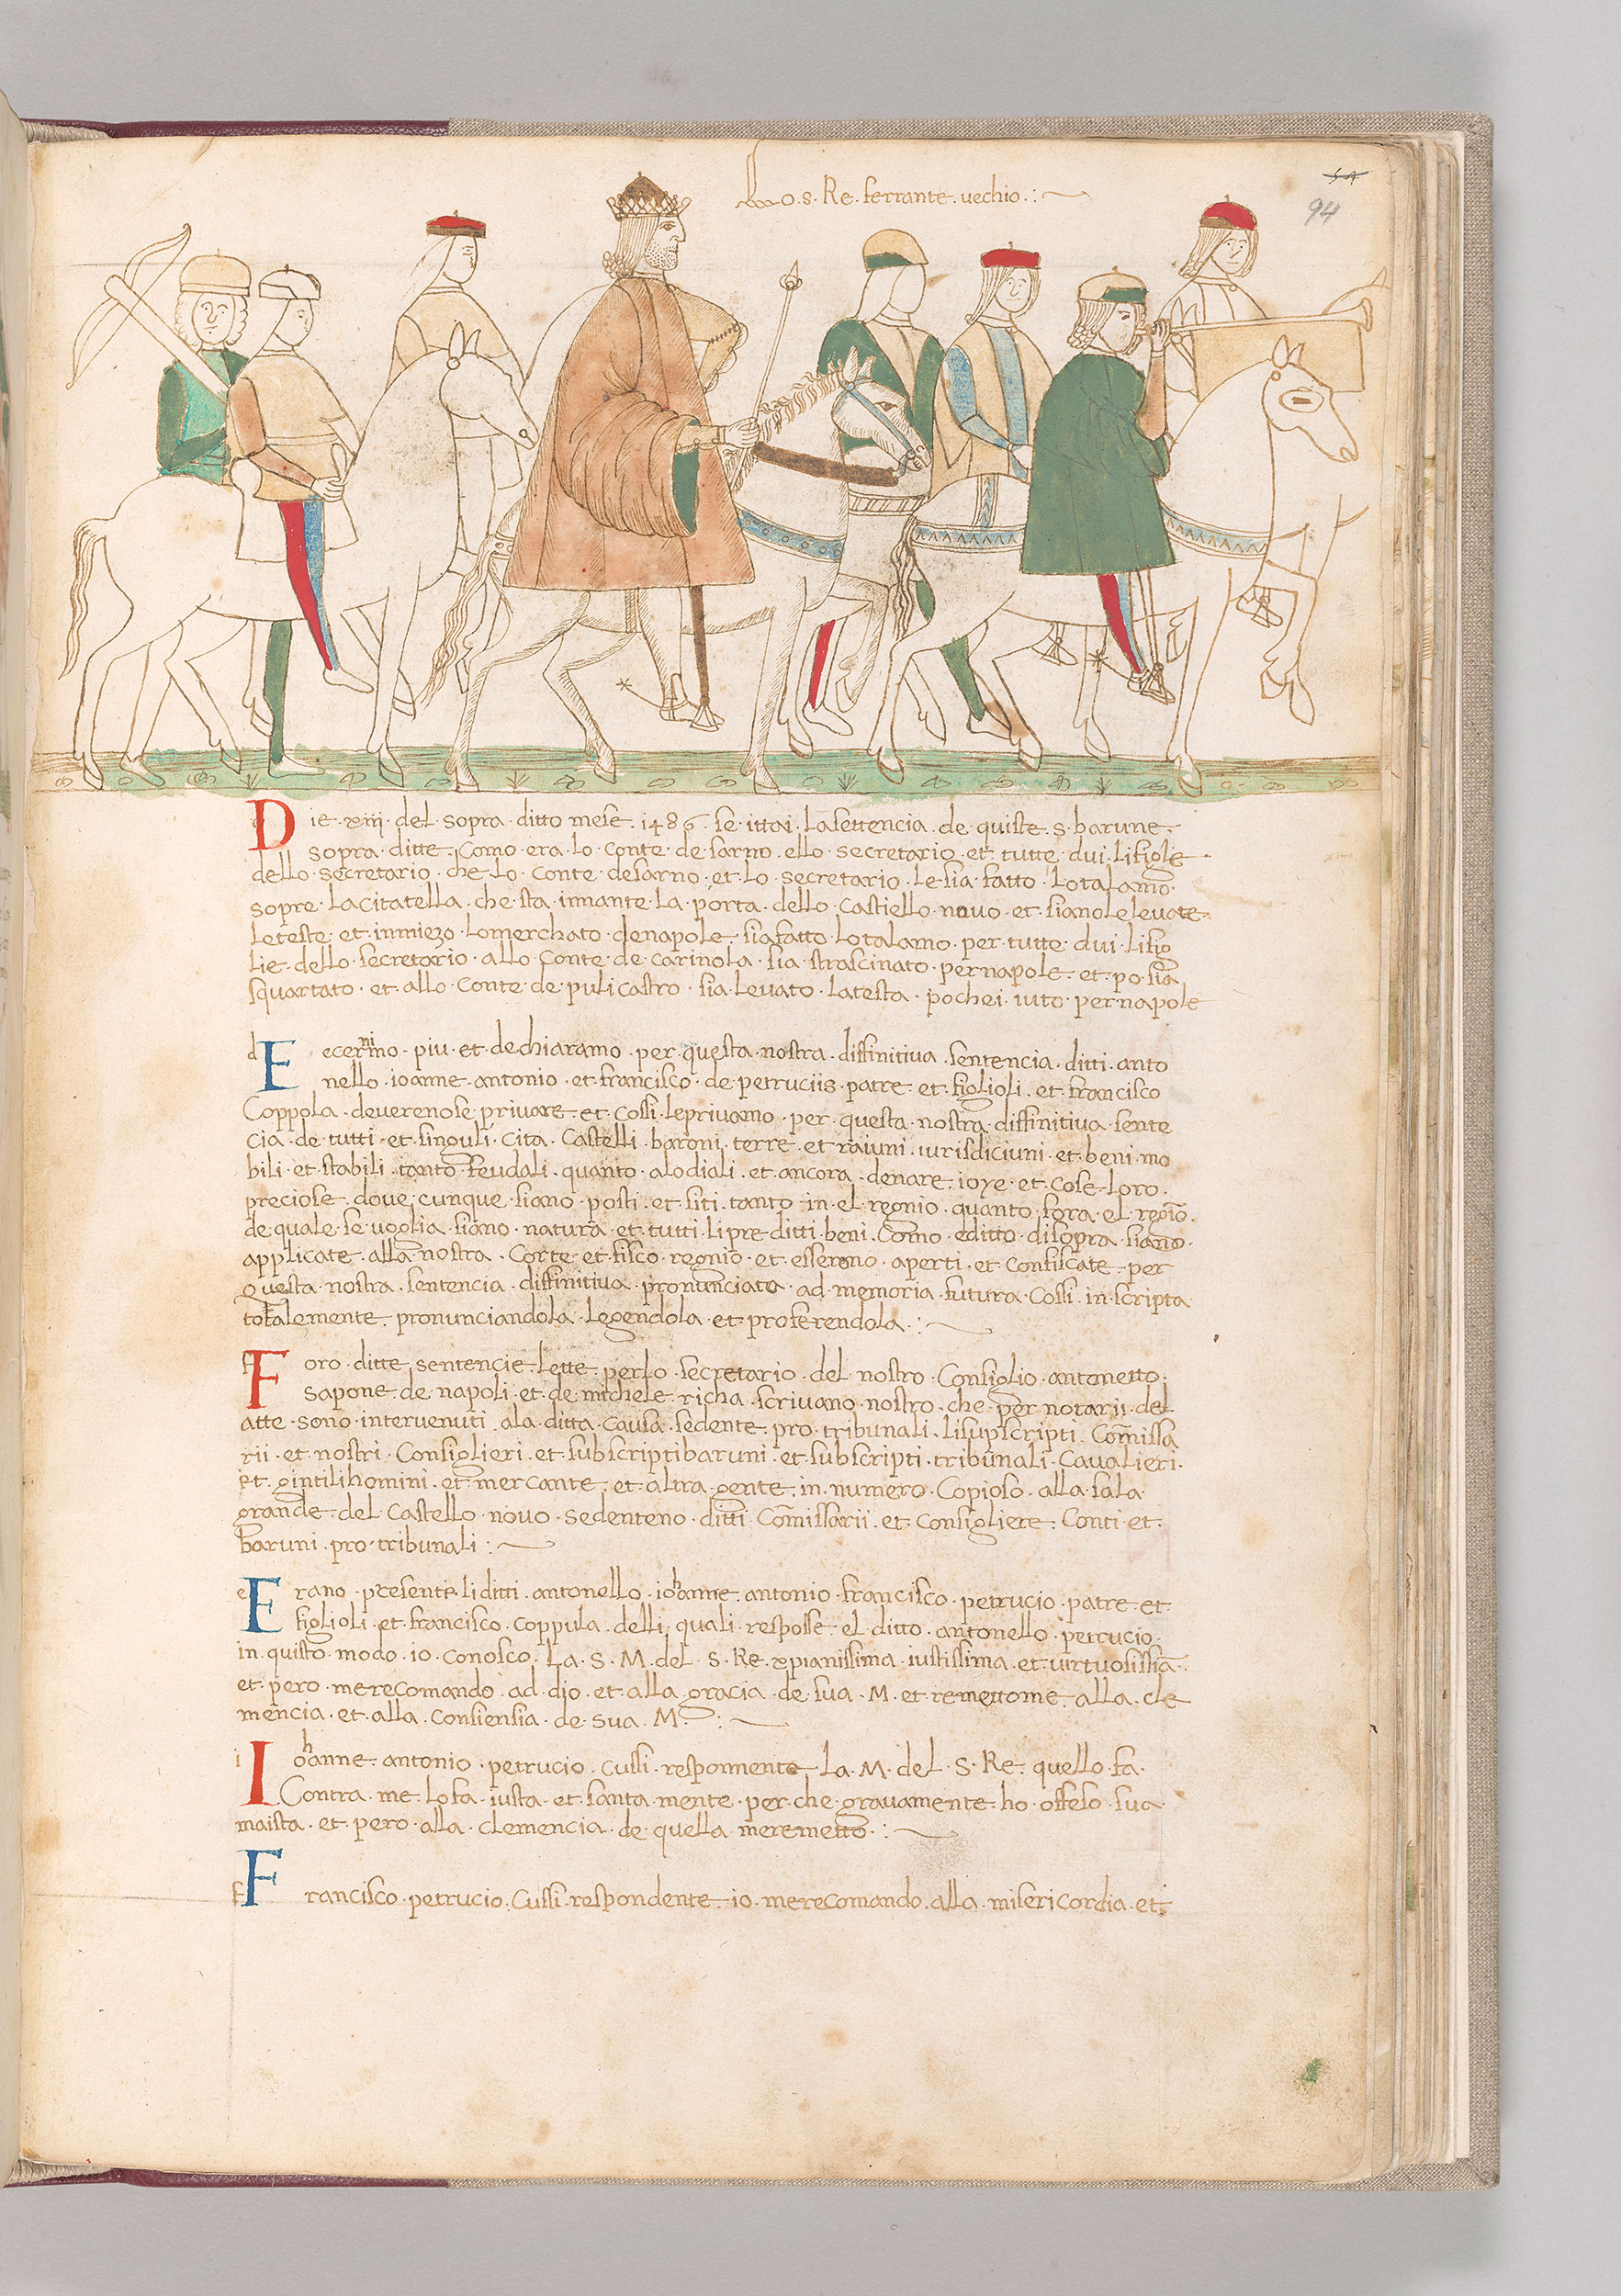 Lo .s. Re. ferrante. vechio.:~
54
94
Die. xiii. del. sopra. ditto mese. 1486. se. ittai. La settencia. de. quiste. s. barune.
sopra. ditte. Como. era. lo. conte. de sarno. ello. secretario. et. tutte. dui. li figle.
dello. secretario. che. Lo. Conte. de sarno. et. Lo. secretario. Le sia. fatto. Lo talamo.
sopre. La citatella. che. sta. innante. La. porta. dello. Castiello. novo. et. siano Le levate.
Le teste. et. in miezo. Lo merchato. de napole. sia fatto. Lo talamo. per. tutte. dui. Li fig
lie. dello. secretario. allo. Conte. de. carinola. sia. strascinato. per napole. et. po. sia
squartato. et. allo. Conte. de. pulicastro. sia. Levato. La testa. po chei. iuto. per napole
dEecernimo. piu. et. dechiaramo. per. questa. nostra. diffinitiva. sentencia. ditti. anto
nello. ioanne. antonio. et. francisco. de. petruciis. patre. et. figlioli. et. francisco
Coppola. deverenose. privare. et. Cossi. le privamo. per. questa. nostra. diffinitiva. sente
cia. de. tutti. et. singuli. Cita. Castelli. baroni. terre. et. raiuni. iurisdiciuni. et. beni. mo
bili. et. stabili. tanto. feudali. quanto. alodiali. et. ancora. denare. ioye. et. Cose. Loro.
preciose. dove. cunque. siano. posti. et. siti. tanto. in. el. regnio. quanto. fora. el. regio.
de quale. se. voglia. siano. natura. et. tutti. li pre ditti. beni. Como. e ditto. di sopra. siano.
applicate. alla nostra. Corte. et. fisco. regnio. et. esserono. aperti. et. Confiscate. per
questa. nostra. sentencia. diffinitiva. pronunciata. ad. memoria. futura. Cossi. in scripta
totalemente. pronunciandola. Legendola. et. proferendola.:~
fForo. ditte. sentencie. Lette. per lo. secretario. del. nostro. Consiglio. antonetto.
sapone. de. napoli. et. de. michele. richa. scrivano. nostro. che. per. notarii. del
atte. sono. intervenuti. ala. ditta. Causa. sedente. pro. tribunali. li supscripti. Comissa
rii. et. nostri. Consiglieri. et. subscripti baruni. et. subscripti. tribunali. Cavalieri.
et. gintilihomini. et. mercante. et. altra. gente. in. numero. Copioso. alla. sala
grande. del. Castello. novo. sedenteno. ditti. Comissarii. et. Consigliere. Conti. et.
baruni. pro. tribunali:~
eErano. presente. li ditti. antonello. iohanne. antonio. francisco. petrucio. patre. et
figlioli. et. francisco. Coppula. delli. quali. resposse. el. ditto. antonello. petrucio.
in. quisto. modo. io. Conosco. La. S. M. del. S. Re. xpianissima. iustissima. et. virtuosissia.
et. pero. me recomando. ad. dio. et. alla. gracia. de. sua. M. et remettome. alla. cle
mencia. et. alla. Consiensia. de. sua. M.:~
iIohanne. antonio. petrucio. Cussi. responnente. La. M. del. S. Re. quello. fa.
Contra. me. Lo fa. iusta. et. santa. mente. per. che. gravamente. ho. offeso. sua.
maista. et. pero. alla. clemencia. de. quella. me remetto.:~
fFrancisco. petrucio. Cussi. respondente. io. me recomando. alla. misericordia. et.